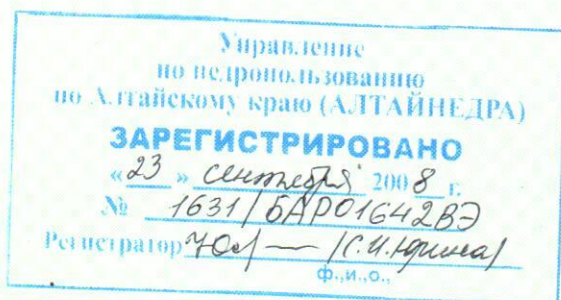 Управление
по недропользованию
по Алтайскому краю (АЛТАЙНЕДРА)
ЗАРЕГИСТРИРОВАНО
«23» сентября 2008 г.
№ 1631/БАР01642ВЭ
Регистратор /С.И.Юрина/
ф.,и.,о.,